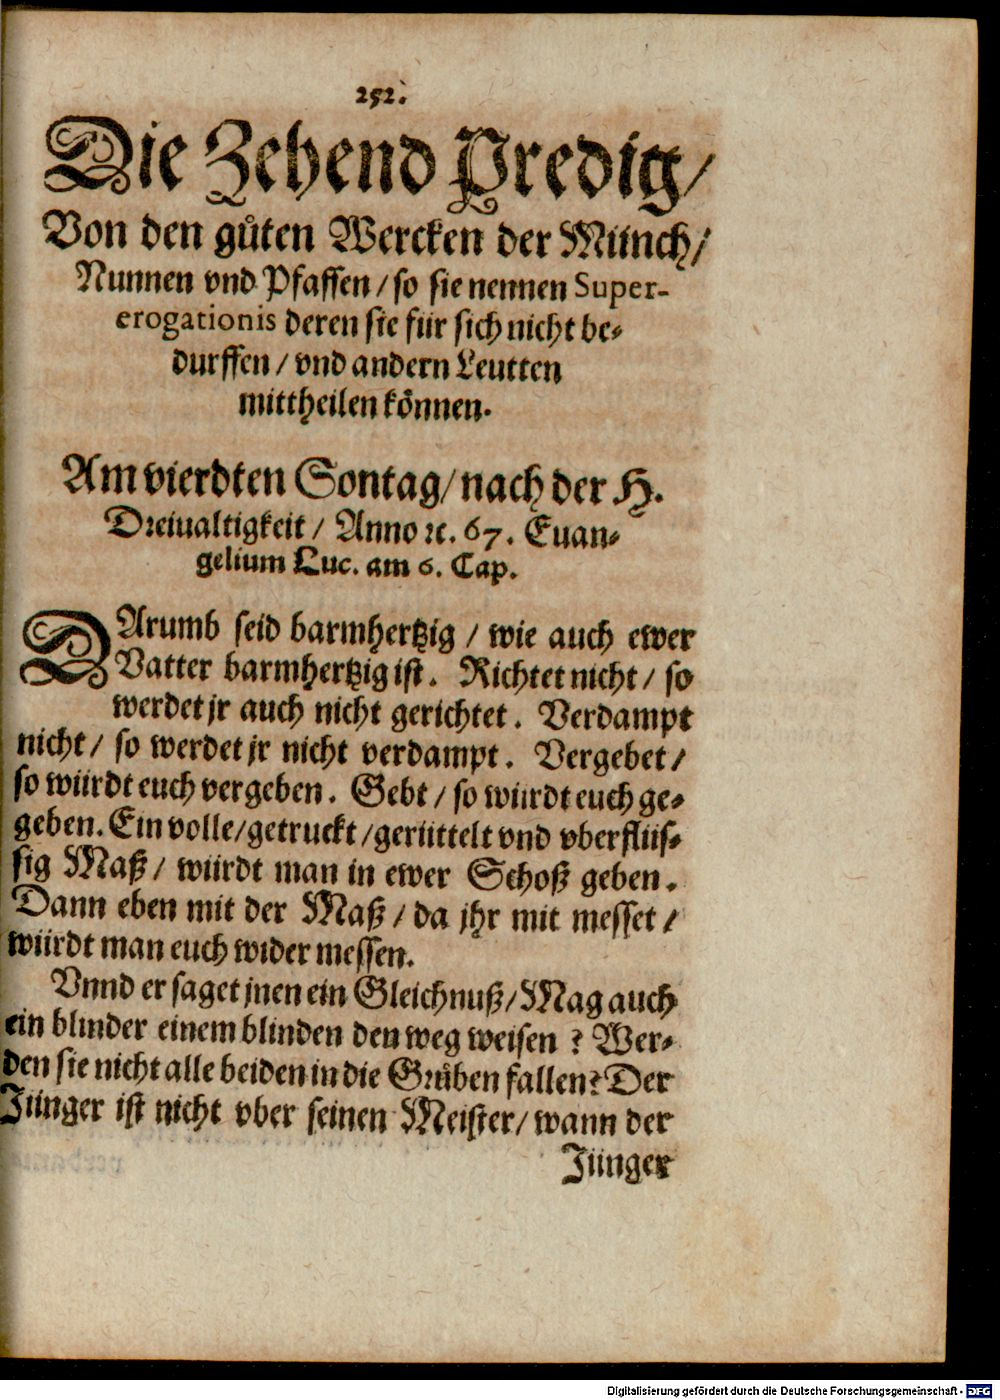 252.
Die Zehend Predig/
Von den gůten Wercken der Münch/
Nunnen vnd Pfaffen/ so sie nennen Super-
erogationis deren sie für sich nicht be-
durffen/ vnd andern Leutten
mittheilen können.
Am vierdten Sontag/ nach der H.
Dreiualtigkeit/ Anno ꝛc. 67. Euan-
gelium Luc. am 6. Cap.
DArumb seid barmhertzig / wie auch ewer
Vatter barmhertzig ist. Richtet nicht/ so
werdet jr auch nicht gerichtet. Verdampt
nicht/ so werdet jr nicht verdampt. Vergebet/
so würdt euch vergeben. Gebt/ so würdt euch ge-
geben. Ein volle/getruckt/gerüttelt vnd vberflüs-
sig Maß/ würdt man in ewer Schoß geben.
Dann eben mit der Maß/ da jhr mit messet/
würdt man euch wider messen.
Vnnd er saget jnen ein Gleichnuß/ Mag auch
ein blinder einem blinden den weg weisen? Wer-
den sie nicht alle beiden in die Grůben fallen? Der
Jünger ist nicht vber seinen Meister/ wann der
Jünger
Digitalisierung gefördert durch die Deutsche Forschungsgemeinschaft - DFG